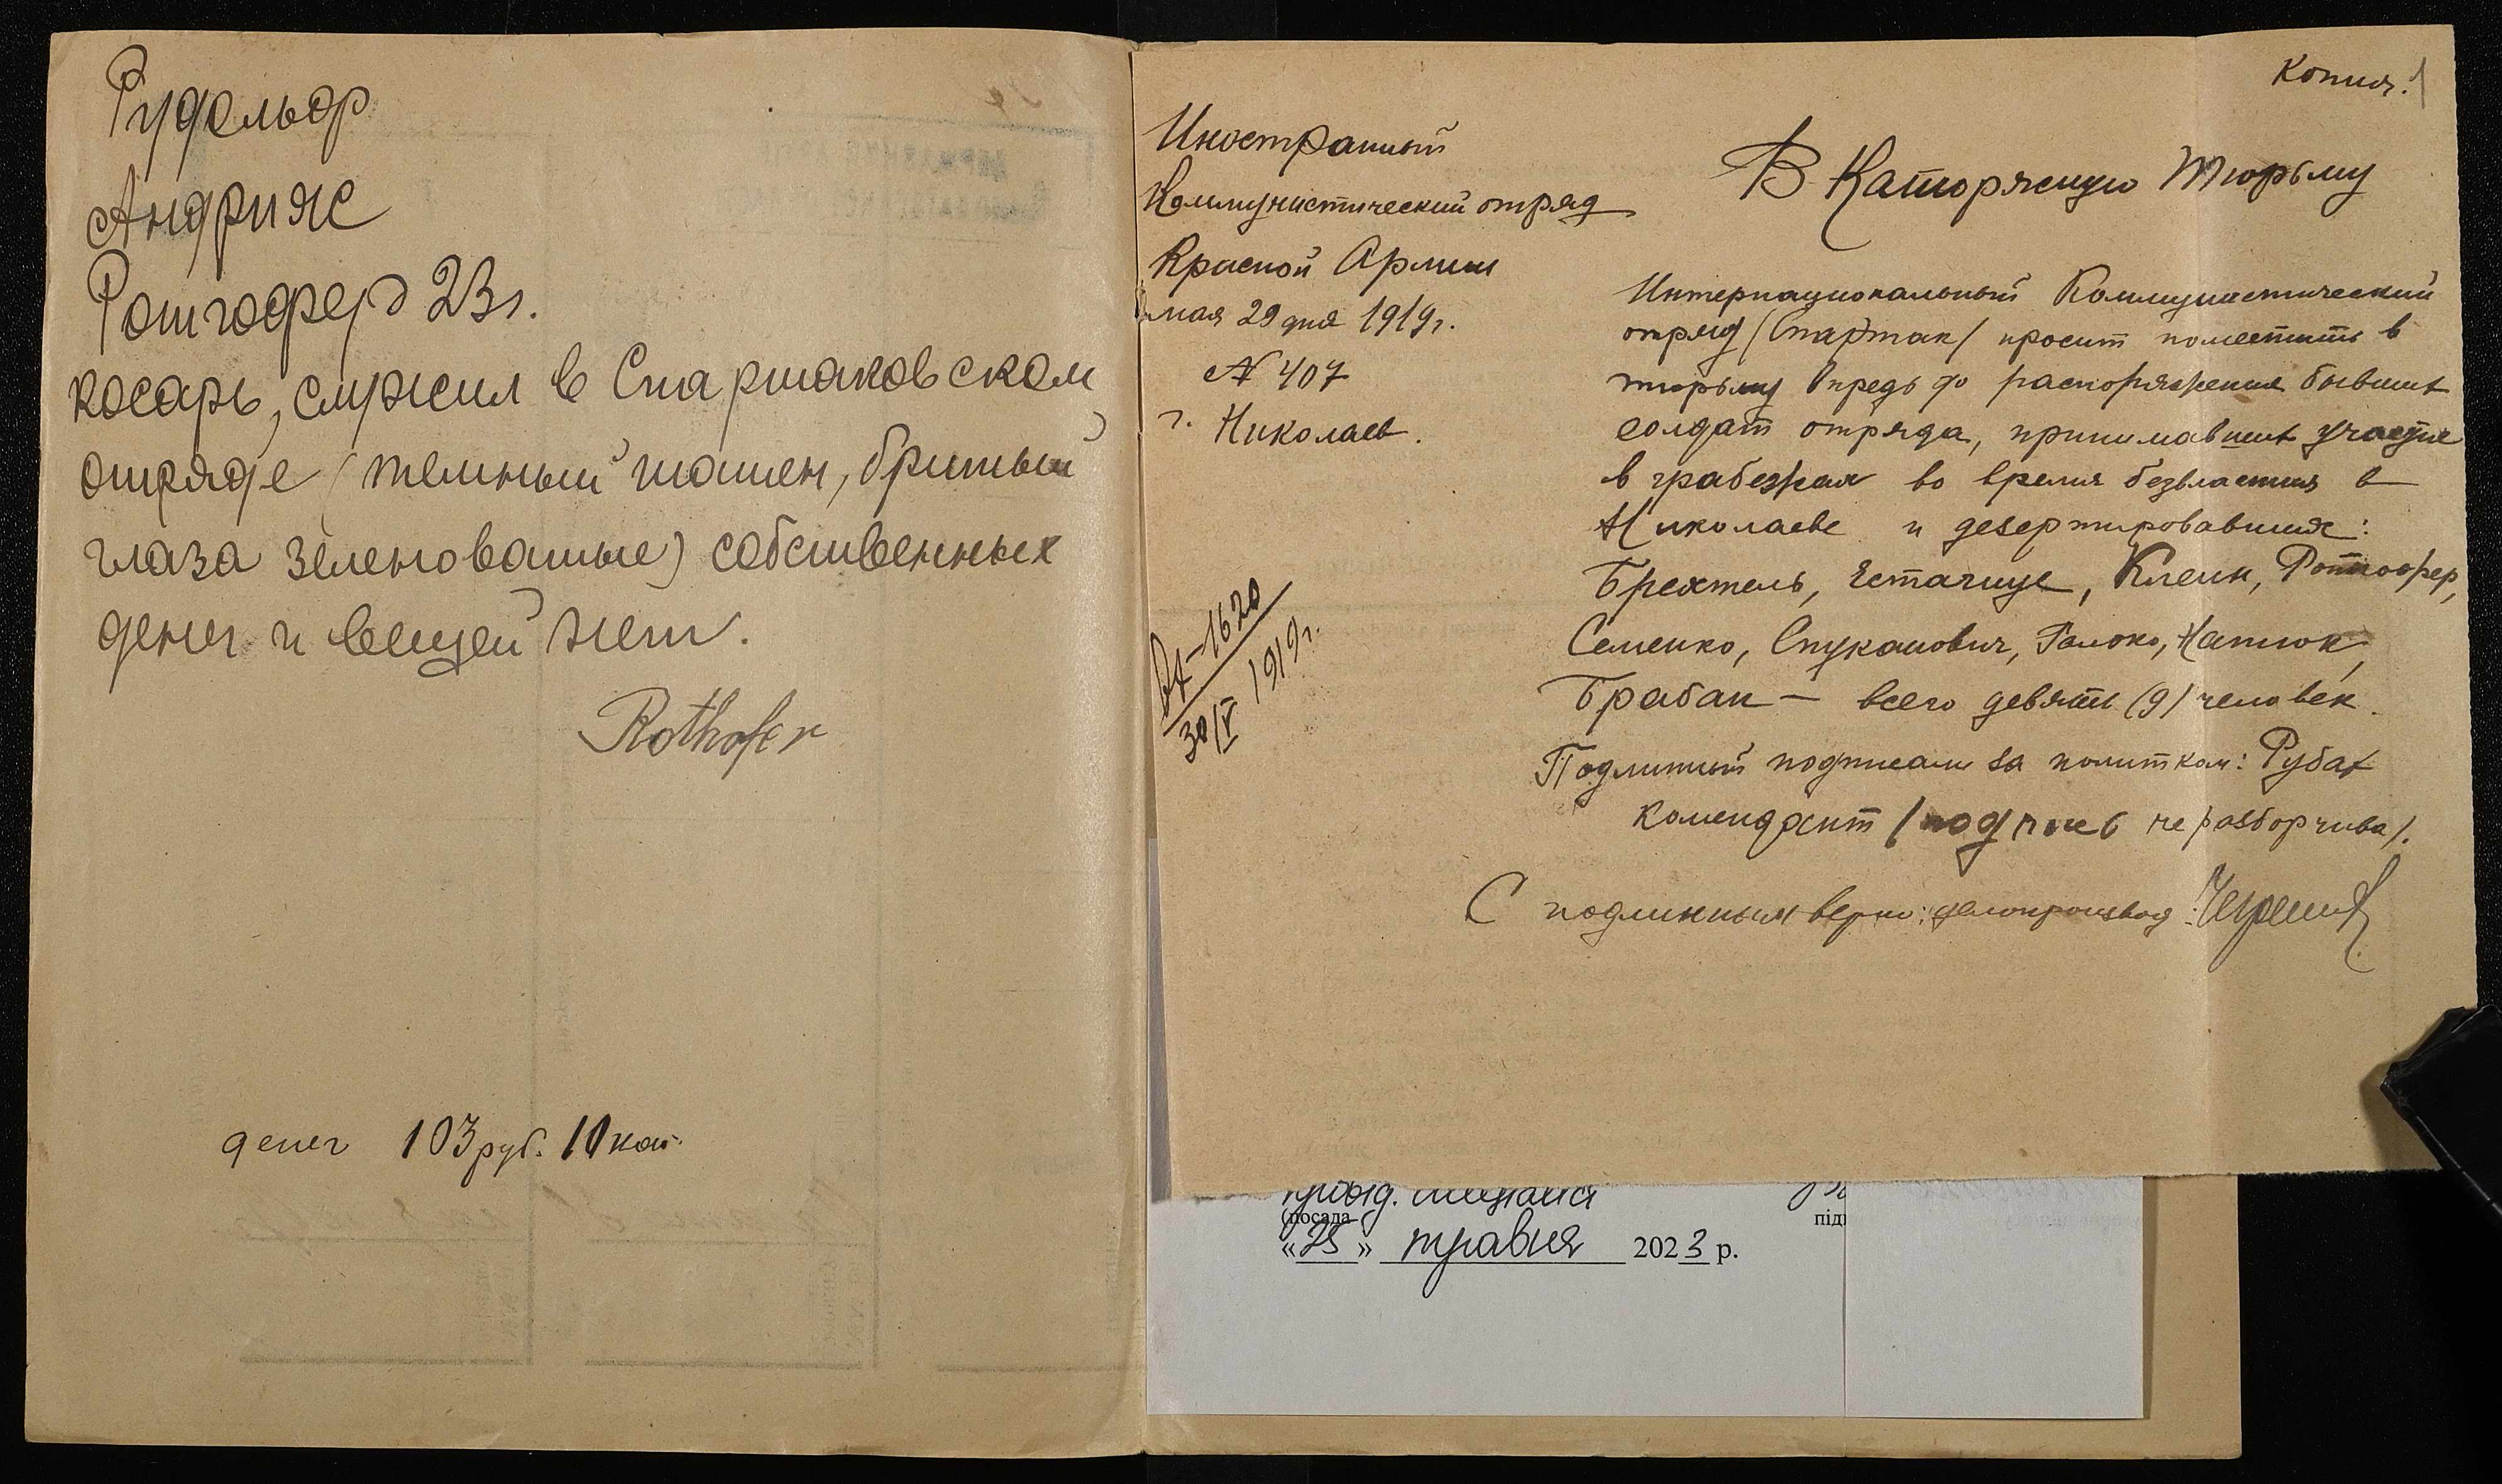 Рудольф
Андрияс
Ротгофер 23 г.
косарь, служил в Спартаковском
отряде (темный шатен, бритый
глаза зеленоватые) собственных
денег и вещей нет.
Rothofer
денег 103 руб. 10 коп.
Копия.
1
Иностранный
Коммунистический отряд
Красной Армии
мая 29 дня 1919 г.
№ 407
г. Николаев.
Вх-1620
30/V 1919 г.
В Каторжную тюрьму
Интернациональный Коммунистический
отряд /Спартак/ просит поместить в
тюрьму впредь до распоряжения бывших
солдат отряда, принимавших участие
в грабежах во время безвластия в
Николаеве и дезертировавших:
Брехтель, Клеин, Ротгофер,
Семенко, Стуканович, Галоко, Натюк,
Брабан — всего девять (9) человек.
Подлинный подписали за политком: Рубах
комендант /подпись не разборчива/.
С подлинным верно: делопроизвод:
провід. спеціаліст
(посада)
підп
«25» травня 2023 р.